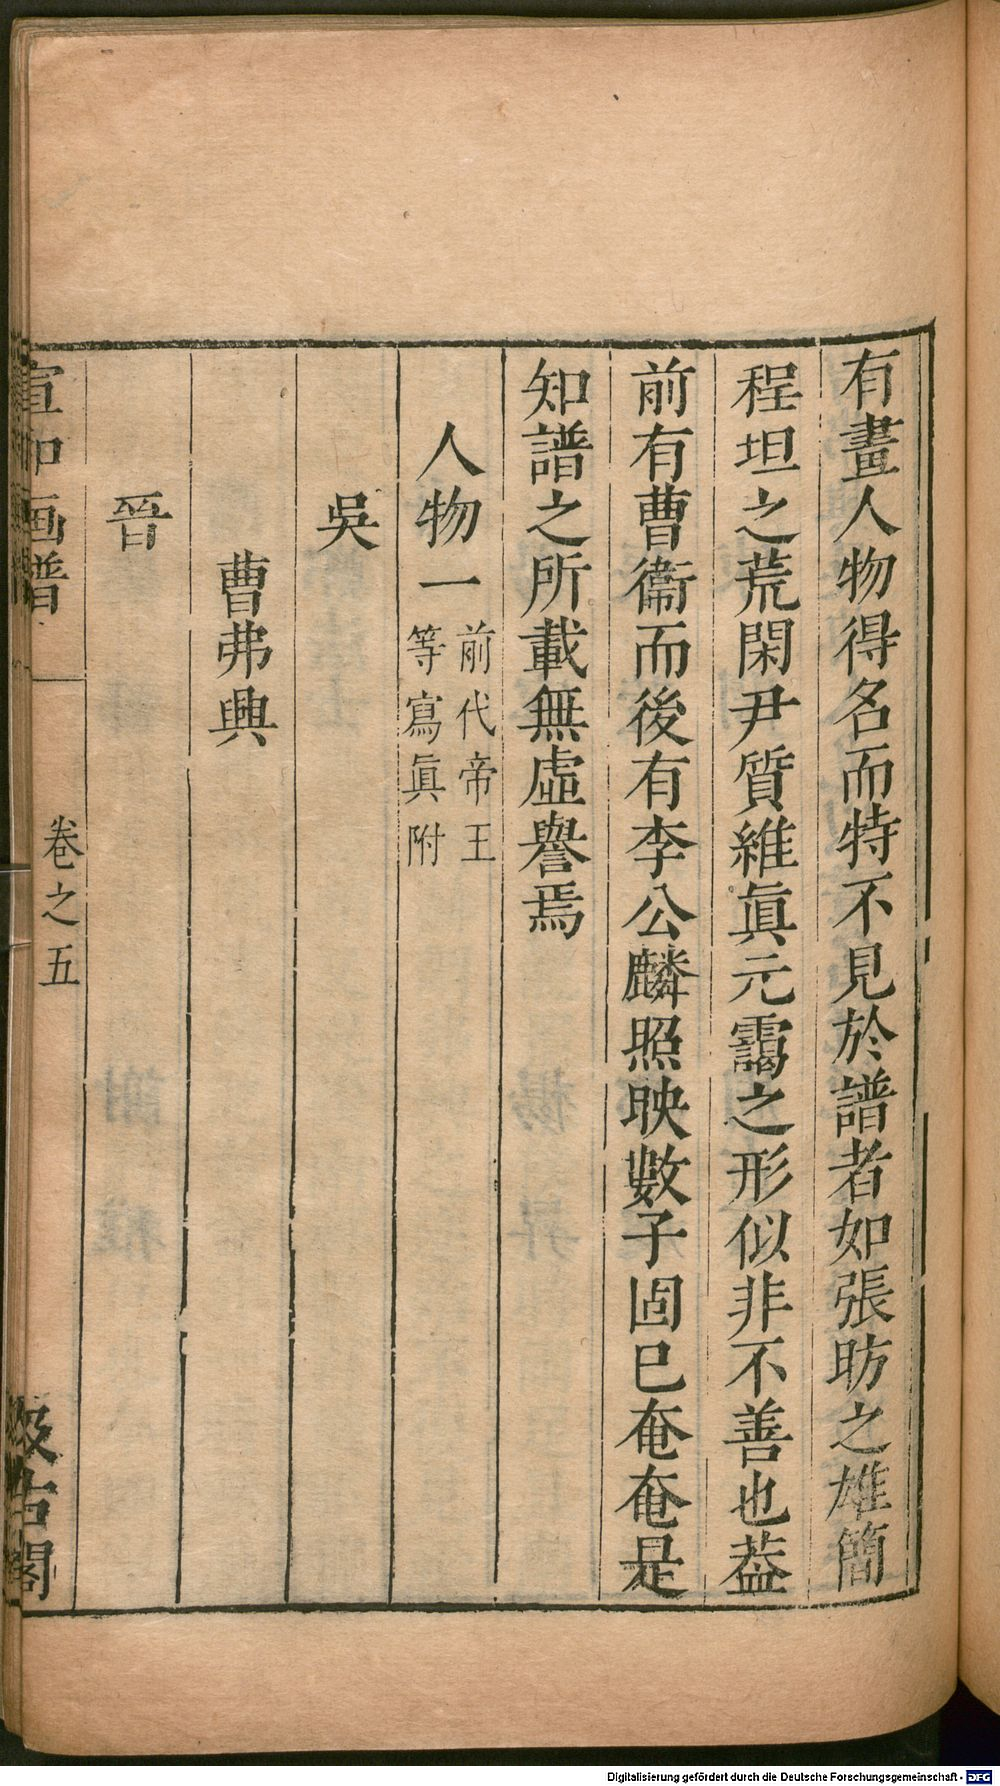 有畫人物得名而特不見於譜者如張昉之雄簡
程坦之荒閑尹質維眞元靄之形似非不善也葢
前有曹衞而後有李公麟照映數子固巳奄奄是
知譜之所載無虛譽焉
人物一 前代帝王
等寫眞附
吳
曹弗興
晉
宣和画譜 卷之五 汲古閣
Digitalisierung gefördert durch die Deutsche Forschungsgemeinschaft - DFG